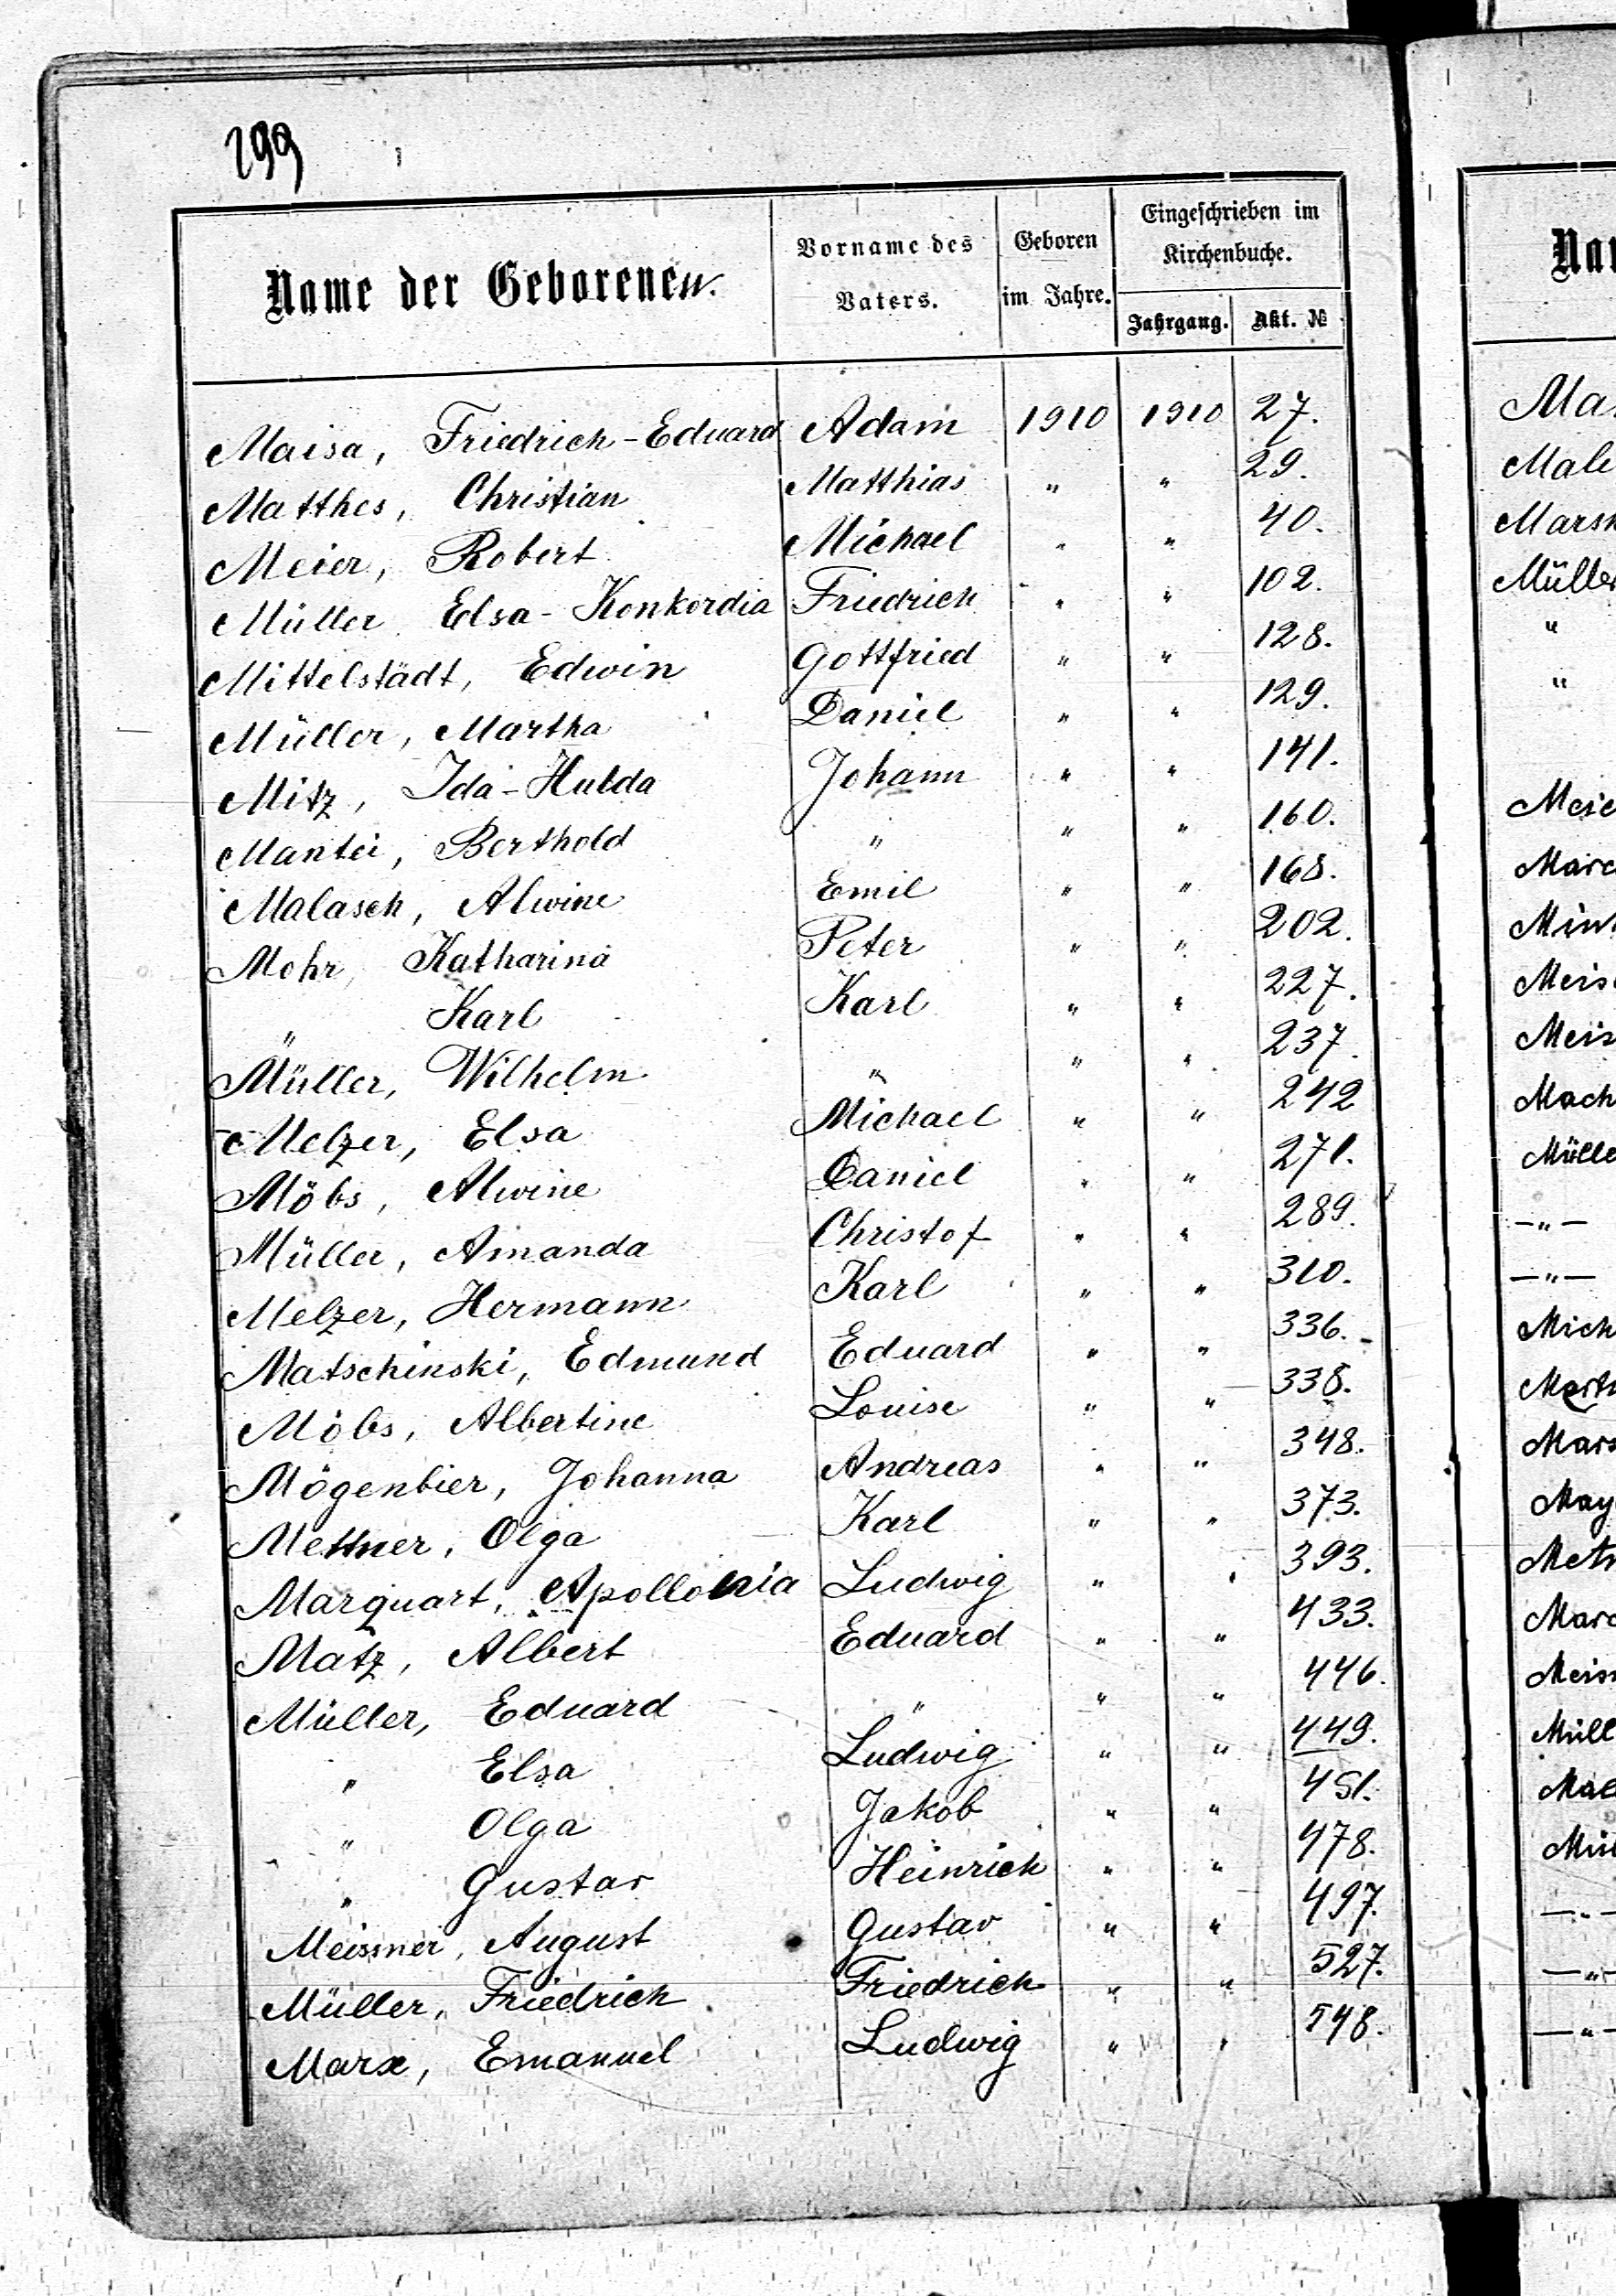 299
Name der Geborenen.
Vorname des Vaters.
Geboren im Jahre.
Eingeschrieben im Kirchenbuche.
Jahrgang. Akt. №
Maisa, Friedrich-Eduard Adam 1910 1910 27.
Matthes, Christian Matthias " " 29.
Meier, Robert Michael " " 40.
Müller Elsa-Konkordia Friedrich " " 102.
Mittelstädt, Edwin Gottfried " " 128.
Müller, Martha Daniel " " 129.
Mitz, Ida-Hulda Johann " " 141.
Mantei, Berthold " " " 160.
Malasch, Alwine Emil " " 168.
Mohr, Katharina Peter " " 202.
" Karl Karl " " 227.
Müller, Wilhelm " " " 237.
Melzer, Elsa Michael " " 242
Möbs, Alwine Daniel " " 271.
Müller, Amanda Christof " " 289.
Melzer, Hermann Karl " " 310.
Matschinski, Edmund Eduard " " 336.
Möbs, Albertine Louise " " 338.
Mögenbier, Johanna Andreas " " 348.
Mettner, Olga Karl " " 373.
Marquart, Apollonia Ludwig " " 393.
Matz, Albert Eduard " " 433.
Müller, Eduard " " " 446.
" Elsa Ludwig " " 449.
" Olga Jakob " " 451.
" Gustav Heinrich " " 478.
Meissner, August Gustav " " 497.
Müller, Friedrich Friedrich " " 527.
Marx, Emanuel Ludwig " " 548.